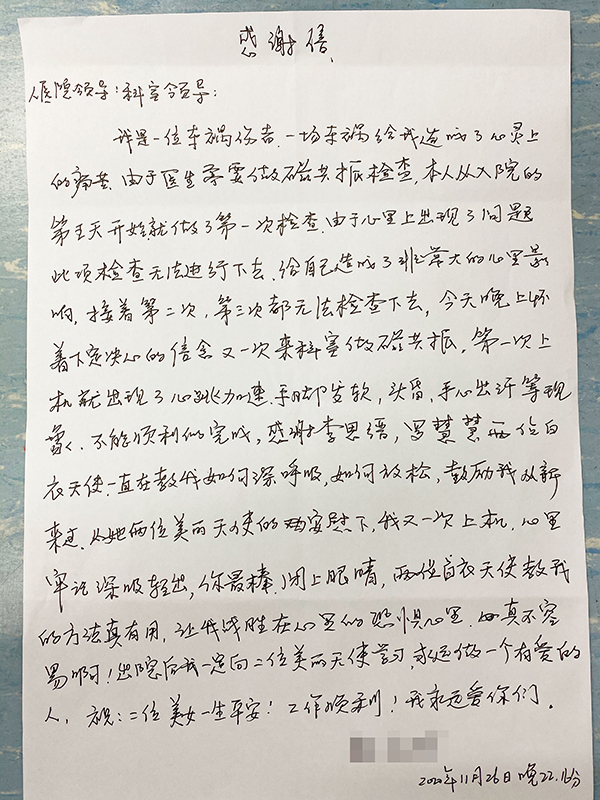 感谢信
人医院领导:科室领导:
我是一位车祸伤者.一场车祸给我造成了心灵上
的痛苦.由于医生需要做磁共振检查,本人从入院的
第五天开始就做了第一次检查.由于心里上出现了问题
此项检查无法进行下去.给自己造成了非常大的心里影
响,接着第二次,第三次都无法检查下去,今天晚上怀
着下定决心的信念又一次来科室做磁共振.第一次上
机就出现了心跳加速.手脚发软,头昏.手心出汗等现
象.不能顺利的完成,感谢李思语,罗慧慧两位白
衣天使一直在教我如何深呼吸,如何放松,鼓励我从新
来过.从她俩位美丽天使的安慰下,我又一次上机.心里
牢记深吸轻出,你最棒.闭上眼睛,两位白衣天使教我
的方法真有用,让我战胜在心里的恐惧心里.真不容
易啊!出院后我一定向二位美丽天使学习,永远做一个有爱的
人,祝:二位美女一生平安!工作顺利!我永远爱你们.
2020年11月26日晚22.